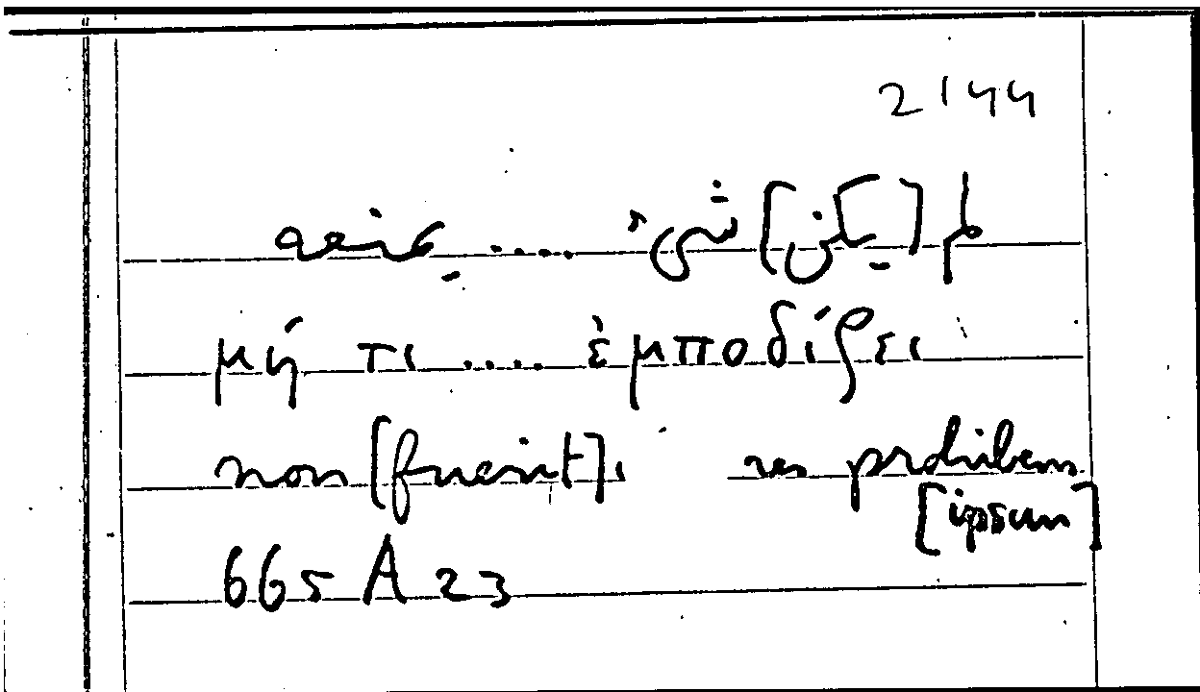 2144
لم [يكن] شيء .... يمنعه
μή τι .... ἐμποδίζει
non [fuerit] res prohibens
[ipsum]
665 A 23